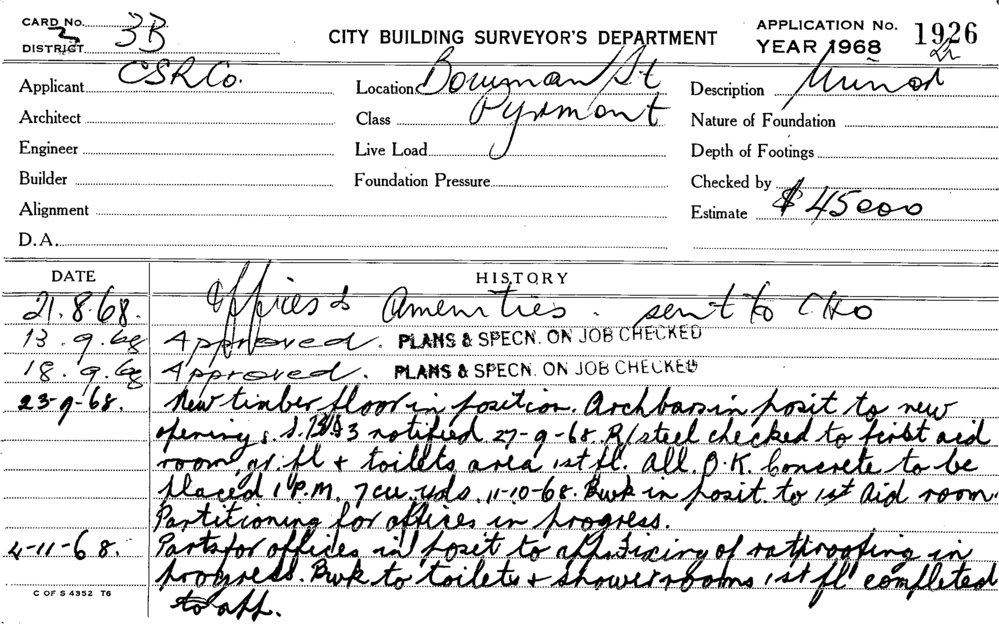 CARD No.
3
DISTRICT 3B
CITY BUILDING SURVEYOR'S DEPARTMENT
APPLICATION No. 1926
YEAR 1968
Applicant CSR Co.
Location Bowman St
Description Minor
Architect
Class Pyrmont
Nature of Foundation
Engineer
Live Load
Depth of Footings
Builder
Foundation Pressure
Checked by
Alignment
Estimate $45000
D.A.
DATE HISTORY
21.8.68. Offices & Amenities. sent to CHO
13.9.68 Approved. PLANS & SPECN. ON JOB CHECKED
18.9.68 Approved. PLANS & SPECN. ON JOB CHECKED
23-9-68. New timber floor in position. Archbars in posit to new
opening. notified 27-9-68. R/steel checked to first aid
room gr. fl + toilets area 1st fl. All O.K. Concrete to be
placed 1 P.M. 7 cu. yds. 11-10-68. Bwk in posit. to 1st Aid room.
Partitioning for offices in progress.
4-11-68. Parts for offices in posit to app. Fixing of ratproofing in
progress. Bwk to toilets + shower rooms 1st fl completed
to app.
C OF S 4352 T6